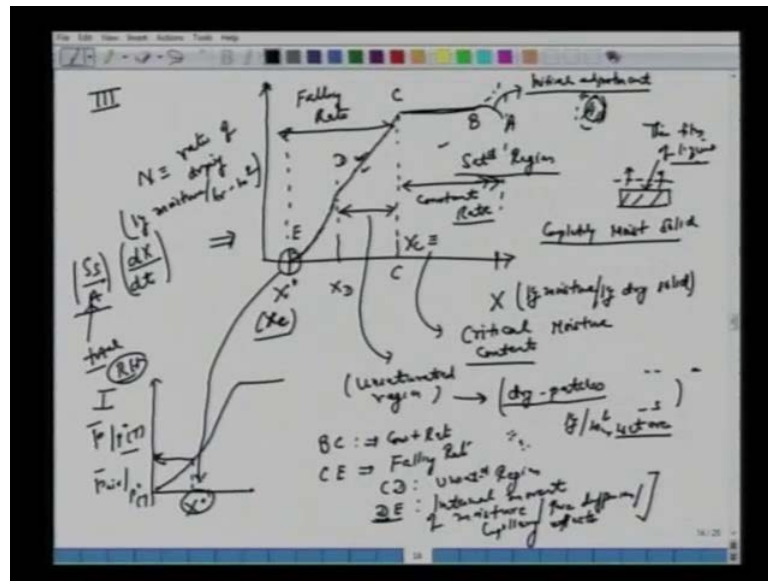 File Edit View Insert Actions Tools Help
III
Falling
Rate
C
B
A
Initial adjustment
N ≡ rate of
drying
(kg
moisture/hr-m²)
D
Sat^d Region
Constant
Rate
Thin film
of liquid
Completely Moist Solid
⇒
(Ss/A) (dX/dt)
E
X*
(Xe)
X_D
C
X_C ≡
X (kg moisture/kg dry solid)
Critical Moisture
Content
total
RH
(Unsaturated
region)
(dry-patches
I
BC : ⇒ Const Rate
CE ⇒ Falling Rate
CD : Unsat^d Region
DE : Internal movement
of moisture / Pore diffusion /
Capillary effects
X*
14